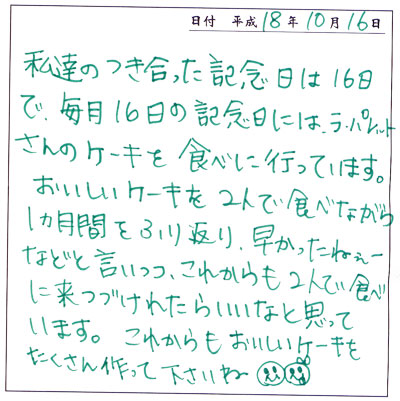 日付 平成18年10月16日
私達のつき合った記念日は16日
で、毎月16日の記念日には、ラ・パレット
さんのケーキを食べに行っています。
おいしいケーキを2人で食べながら
1カ月間をふり返り、早かったねぇー
などと言いつつ、これからも2人で食べ
に来つづけれたらいいなと思って
います。これからもおいしいケーキを
たくさん作って下さいねー